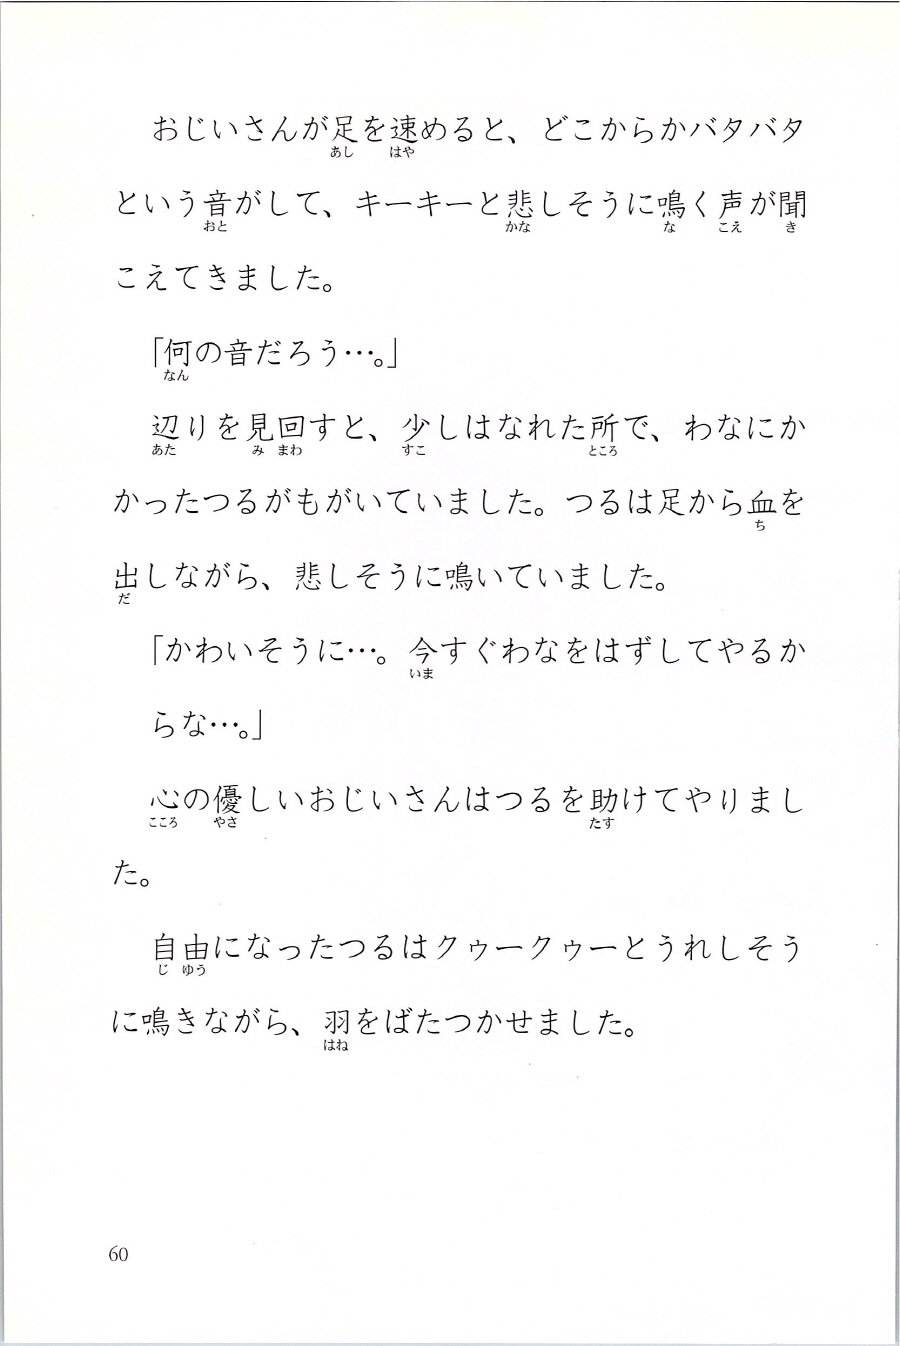 おじいさんが足を速めると、どこからかバタバタ
あし はや
という音がして、キーキーと悲しそうに鳴く声が聞
おと かな な こえ き
こえてきました。
「何の音だろう…。」
なん
辺りを見回すと、少しはなれた所で、わなにか
あた み まわ すこ ところ
かったつるがもがいていました。つるは足から血を
ち
出しながら、悲しそうに鳴いていました。
だ
「かわいそうに…。今すぐわなをはずしてやるか
いま
らな…。」
心の優しいおじいさんはつるを助けてやりまし
こころ やさ たす
た。
自由になったつるはクゥークゥーとうれしそう
じ ゆう
に鳴きながら、羽をばたつかせました。
はね
60